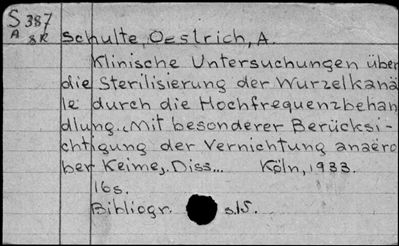 S 387
A 8R
Schulte, Oestrich, A.
Klinische Untersuchungen über
die Sterilisierung der Wurzelkanä
le durch die Hochfrequenzbehan
dlung.. Mit besonderer Berücksi-
chtigung der Vernichtung anaëro
ber Keime,. Diss... Köln, 1933.
16s.
Bibliogr. s.15.